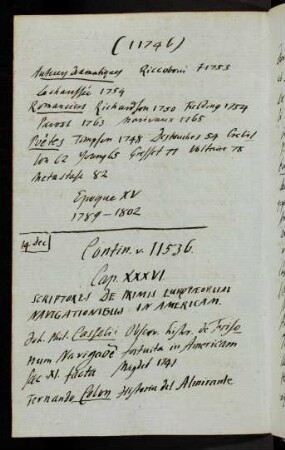 (11746)
Auteurs dramatiques Riccoboni † 1753
Lachaussée 1754
Romanciers Richardson 1750 Fielding 1754
Prevost 1763 Marivaux 1765
Poëtes Tompson 1748 Destouches 54 Crebil
lon 62 Young 65 Gresset 77 Voltaire 78
Metastase 82
Epoque XV
1789-1802
19 Dec
Contin. v. 11536.
Cap. XXXVI
SCRIPTORES DE PRIMIS EUROPÆORUM
NAVIGATIONIBUS IN AMERICAM.
Joh. Phil. Casselii Observ. histor. de Friso
num Navigatione fortuita in Americam
sæc. XI. facta Magdeb 1741
Fernando Colon Historia del Almirante